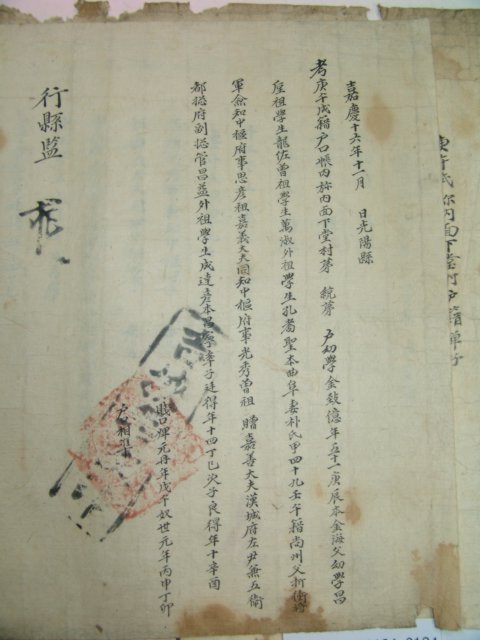 嘉慶十六年十一月 日光陽縣
考庚午成籍戶口帳內 內面下堂村第 統第 戶幼學金致億年五十一庚辰本金海父幼學昌
祖學生龍佐曾祖學生萬淑外祖學生孔者聖本曲阜妻朴氏甲四十九壬午籍尚州父折衝將
軍僉知中樞府事思彦祖嘉義大夫同知中樞府事光秀曾祖 贈嘉善大夫漢城府左尹兼五衛
都摠府副摠管昌益外祖學生成達彦本昌寧率子廷得年十四丁巳次子良得年十辛酉
年戊午奴世元年丙申丁卯
戶口相準
行縣監
內面下堂村戶籍單子